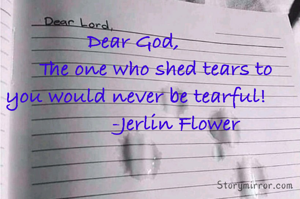 Dear Lord,
Dear God,
The one who shed tears to
you would never be tearful!
-Jerlin Flower
Storymirror.com